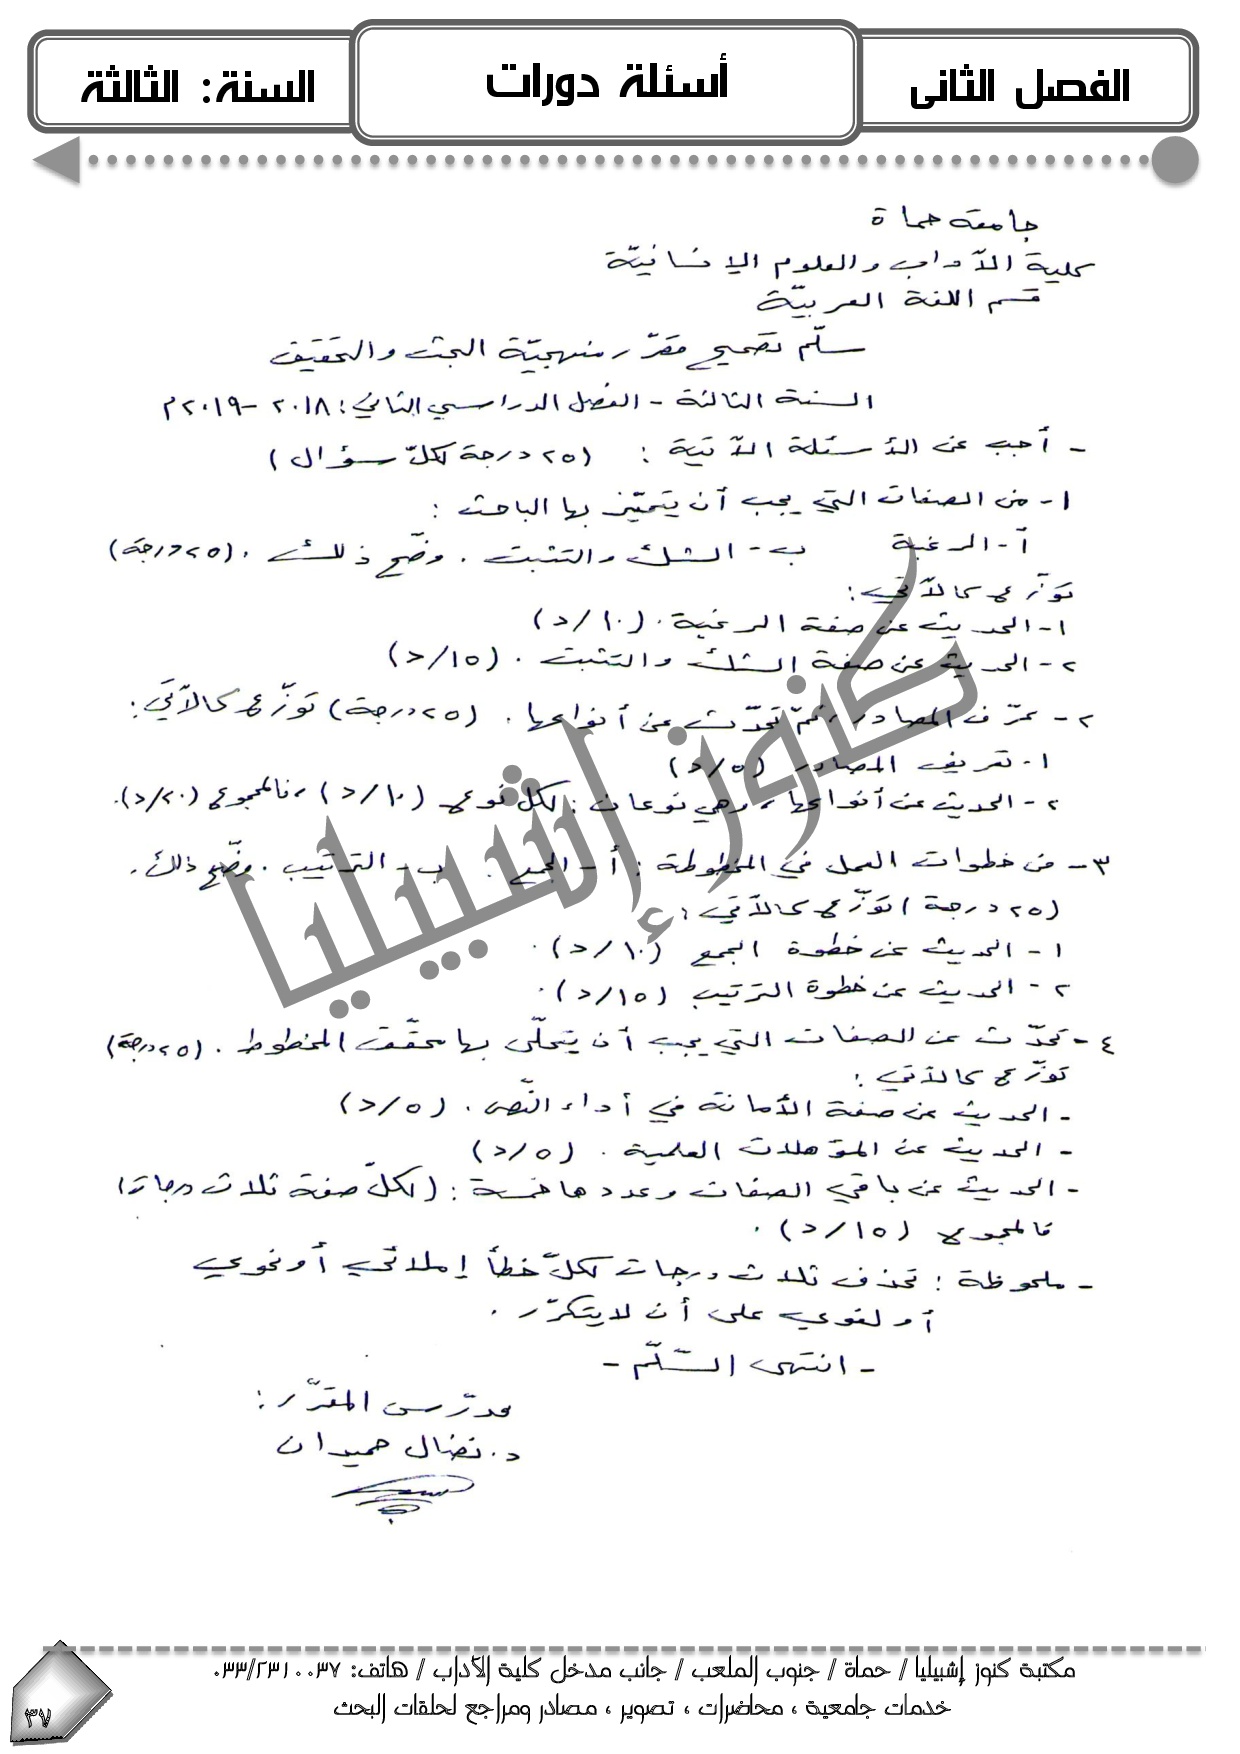 الفصل الثاني
أسئلة دورات
السنة: الثالثة
جامعة حماة
كلية الآداب والعلوم الإنسانيّة
قسم اللغة العربيّة
سلّم تصحيح مقرّر منهجيّة البحث والتحقيق
السنة الثالثة - الفصل الدراسي الثاني: ٢٠١٨ - ٢٠١٩م
- أجب عن الأسئلة الآتية : (٢٥ درجة لكلّ سؤال)
١- من الصفات التي يجب أن يتميّز بها الباحث :
أ- الرغبة ب- الشك والتثبت . وضّح ذلك . (٢٥ درجة)
توزّع كالآتي :
١- الحديث عن صفة الرغبة . (١٠/د)
٢- الحديث عن صفة الشك والتثبت . (١٥/د)
٢- عرّف المصادر، ثمّ تحدّث عن أنواعها . (٢٥ درجة) توزّع كالآتي :
١- تعريف المصادر (٥/د)
٢- الحديث عن أنواعها ، وهي نوعان : لكل نوع (١٠/د) ، فالمجموع (٢٠/د).
٣- من خطوات العمل في المخطوطة : أ- الجمع . ب- الترتيب . وضّح ذلك .
(٢٥ درجة) توزّع كالآتي :
١- الحديث عن خطوة الجمع (١٠/د) .
٢- الحديث عن خطوة الترتيب (١٥/د) .
٤- تحدّث عن الصفات التي يجب أن يتحلّى بها محقّق المخطوط . (٢٥ درجة)
توزّع كالآتي :
- الحديث عن صفة الأمانة في أداء النّص . (٥/د)
- الحديث عن المؤهلات العلمية . (٥/د)
- الحديث عن باقي الصفات وعددها خمسة : (لكلّ صفة ثلاث درجات)
فالمجموع (١٥/د) .
- ملحوظة : تحذف ثلاث درجات لكلّ خطأ إملائي أو نحوي
أو لغوي على أن لا يتكرّر .
- انتهى السّلّم -
مدرّس المقرّر :
د. نضال حميدان
كنوز إشبيليا
مكتبة كنوز إشبيليا / حماة / جنوب الملعب / جانب مدخل كلية الآداب / هاتف: ٠٣٣/٢٣١٠٠٣٧
خدمات جامعية ، محاضرات ، تصوير ، مصادر ومراجع لحلقات البحث
٣٧